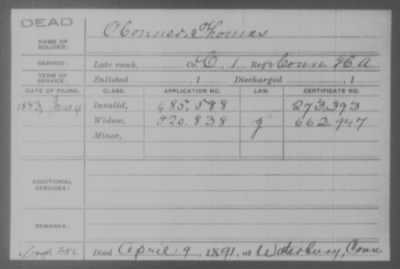 DEAD
NAME OF SOLDIER: O'Connor, Thomas
SERVICE: Late rank, Co. C, 1 Reg't Conn H A
TERM OF SERVICE: Enlisted , 1 Discharged , 1
DATE OF FILING. CLASS. APPLICATION NO. LAW. CERTIFICATE NO.
1883, Invalid, 485.588 273.393
Widow, 520.838 g 662.947
Minor,
ADDITIONAL SERVICES:
REMARKS:
Died April 9, 1891, at Waterbury, Conn.